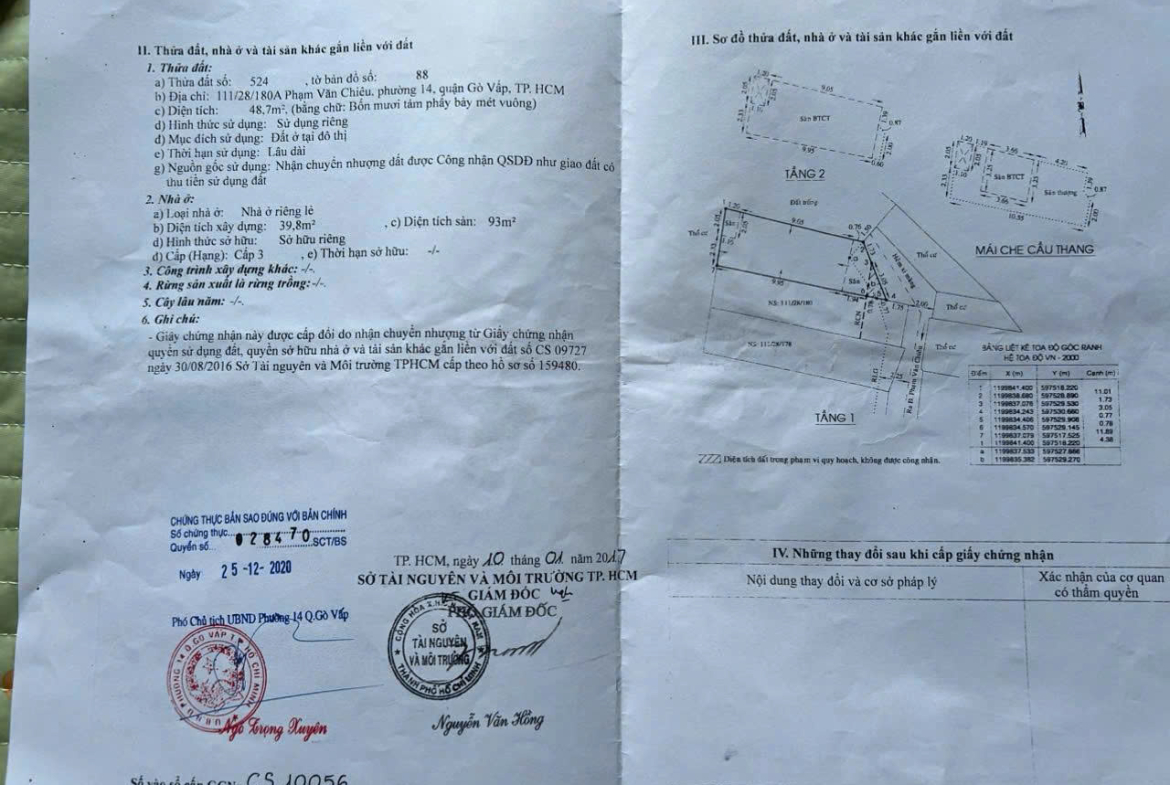 II. Thửa đất, nhà ở và tài sản khác gắn liền với đất
1. Thửa đất:
a) Thửa đất số: 524 , tờ bản đồ số: 88
b) Địa chỉ: 111/28/180A Phạm Văn Chiêu, phường 14, quận Gò Vấp, TP. HCM
c) Diện tích: 48,7m², (bằng chữ: Bốn mươi tám phẩy bảy mét vuông)
d) Hình thức sử dụng: Sử dụng riêng
đ) Mục đích sử dụng: Đất ở tại đô thị
e) Thời hạn sử dụng: Lâu dài
g) Nguồn gốc sử dụng: Nhận chuyển nhượng đất được Công nhận QSDĐ như giao đất có
thu tiền sử dụng đất
2. Nhà ở:
a) Loại nhà ở: Nhà ở riêng lẻ
b) Diện tích xây dựng: 39,8m² , c) Diện tích sàn: 93m²
d) Hình thức sở hữu: Sở hữu riêng
đ) Cấp (Hạng): Cấp 3 , e) Thời hạn sở hữu: -/-
3. Công trình xây dựng khác: -/-.
4. Rừng sản xuất là rừng trồng: -/-.
5. Cây lâu năm: -/-.
6. Ghi chú:
- Giấy chứng nhận này được cấp đổi do nhận chuyển nhượng từ Giấy chứng nhận
quyền sử dụng đất, quyền sở hữu nhà ở và tài sản khác gắn liền với đất số CS 09727
ngày 30/08/2016 Sở Tài nguyên và Môi trường TPHCM cấp theo hồ sơ số 159480.
CHỨNG THỰC BẢN SAO ĐÚNG VỚI BẢN CHÍNH
Số chứng thực... 028470
Quyển số... SCT/BS
Ngày 25-12-2020
Phó Chủ tịch UBND Phường 14 Q.Gò Vấp
Ngô Trọng Xuyên
TP. HCM, ngày 10 tháng 01 năm 2017
SỞ TÀI NGUYÊN VÀ MÔI TRƯỜNG TP. HCM
GIÁM ĐỐC
PHÓ GIÁM ĐỐC
SỞ
TÀI NGUYÊN
VÀ MÔI TRƯỜNG
THÀNH PHỐ HỒ CHÍ MINH
Nguyễn Văn Hồng
CS 10056
III. Sơ đồ thửa đất, nhà ở và tài sản khác gắn liền với đất
1.20
9.05
2.05
2.33
Sàn BTCT
9.95
0.87
2.00
0.60
TẦNG 2
1.20
3.66
4.20
2.05
2.33
Sàn BTCT
3.66
Sân thượng
10.55
0.87
2.00
MÁI CHE CẦU THANG
Đất trống
1.20
9.05
0.76
Thổ cư
2.05
Sân
2.33
9.95
Sân
Hẻm xi măng
Thổ cư
NS: 111/28/180
NS: 111/28/178
1.94
1.75
2.00
Thổ cư
Thổ cư
Ra Đ. Phạm Văn Chiêu
TẦNG 1
BẢNG LIỆT KÊ TỌA ĐỘ GÓC RANH
HỆ TỌA ĐỘ VN - 2000
Điểm X (m) Y (m) Cạnh (m)
1 1199841.400 597518.220
11.01
2 1199838.680 597528.890
1.73
3 1199837.076 597529.530
3.05
4 1199834.243 597530.660
0.77
5 1199834.406 597529.908
0.78
6 1199834.570 597529.145
11.89
7 1199837.079 597517.525
4.38
1 1199841.400 597518.220
a 1199837.533 597527.866
b 1199835.382 597529.270
Diện tích đất trong phạm vi quy hoạch, không được công nhận.
IV. Những thay đổi sau khi cấp giấy chứng nhận
Nội dung thay đổi và cơ sở pháp lý
Xác nhận của cơ quan
có thẩm quyền